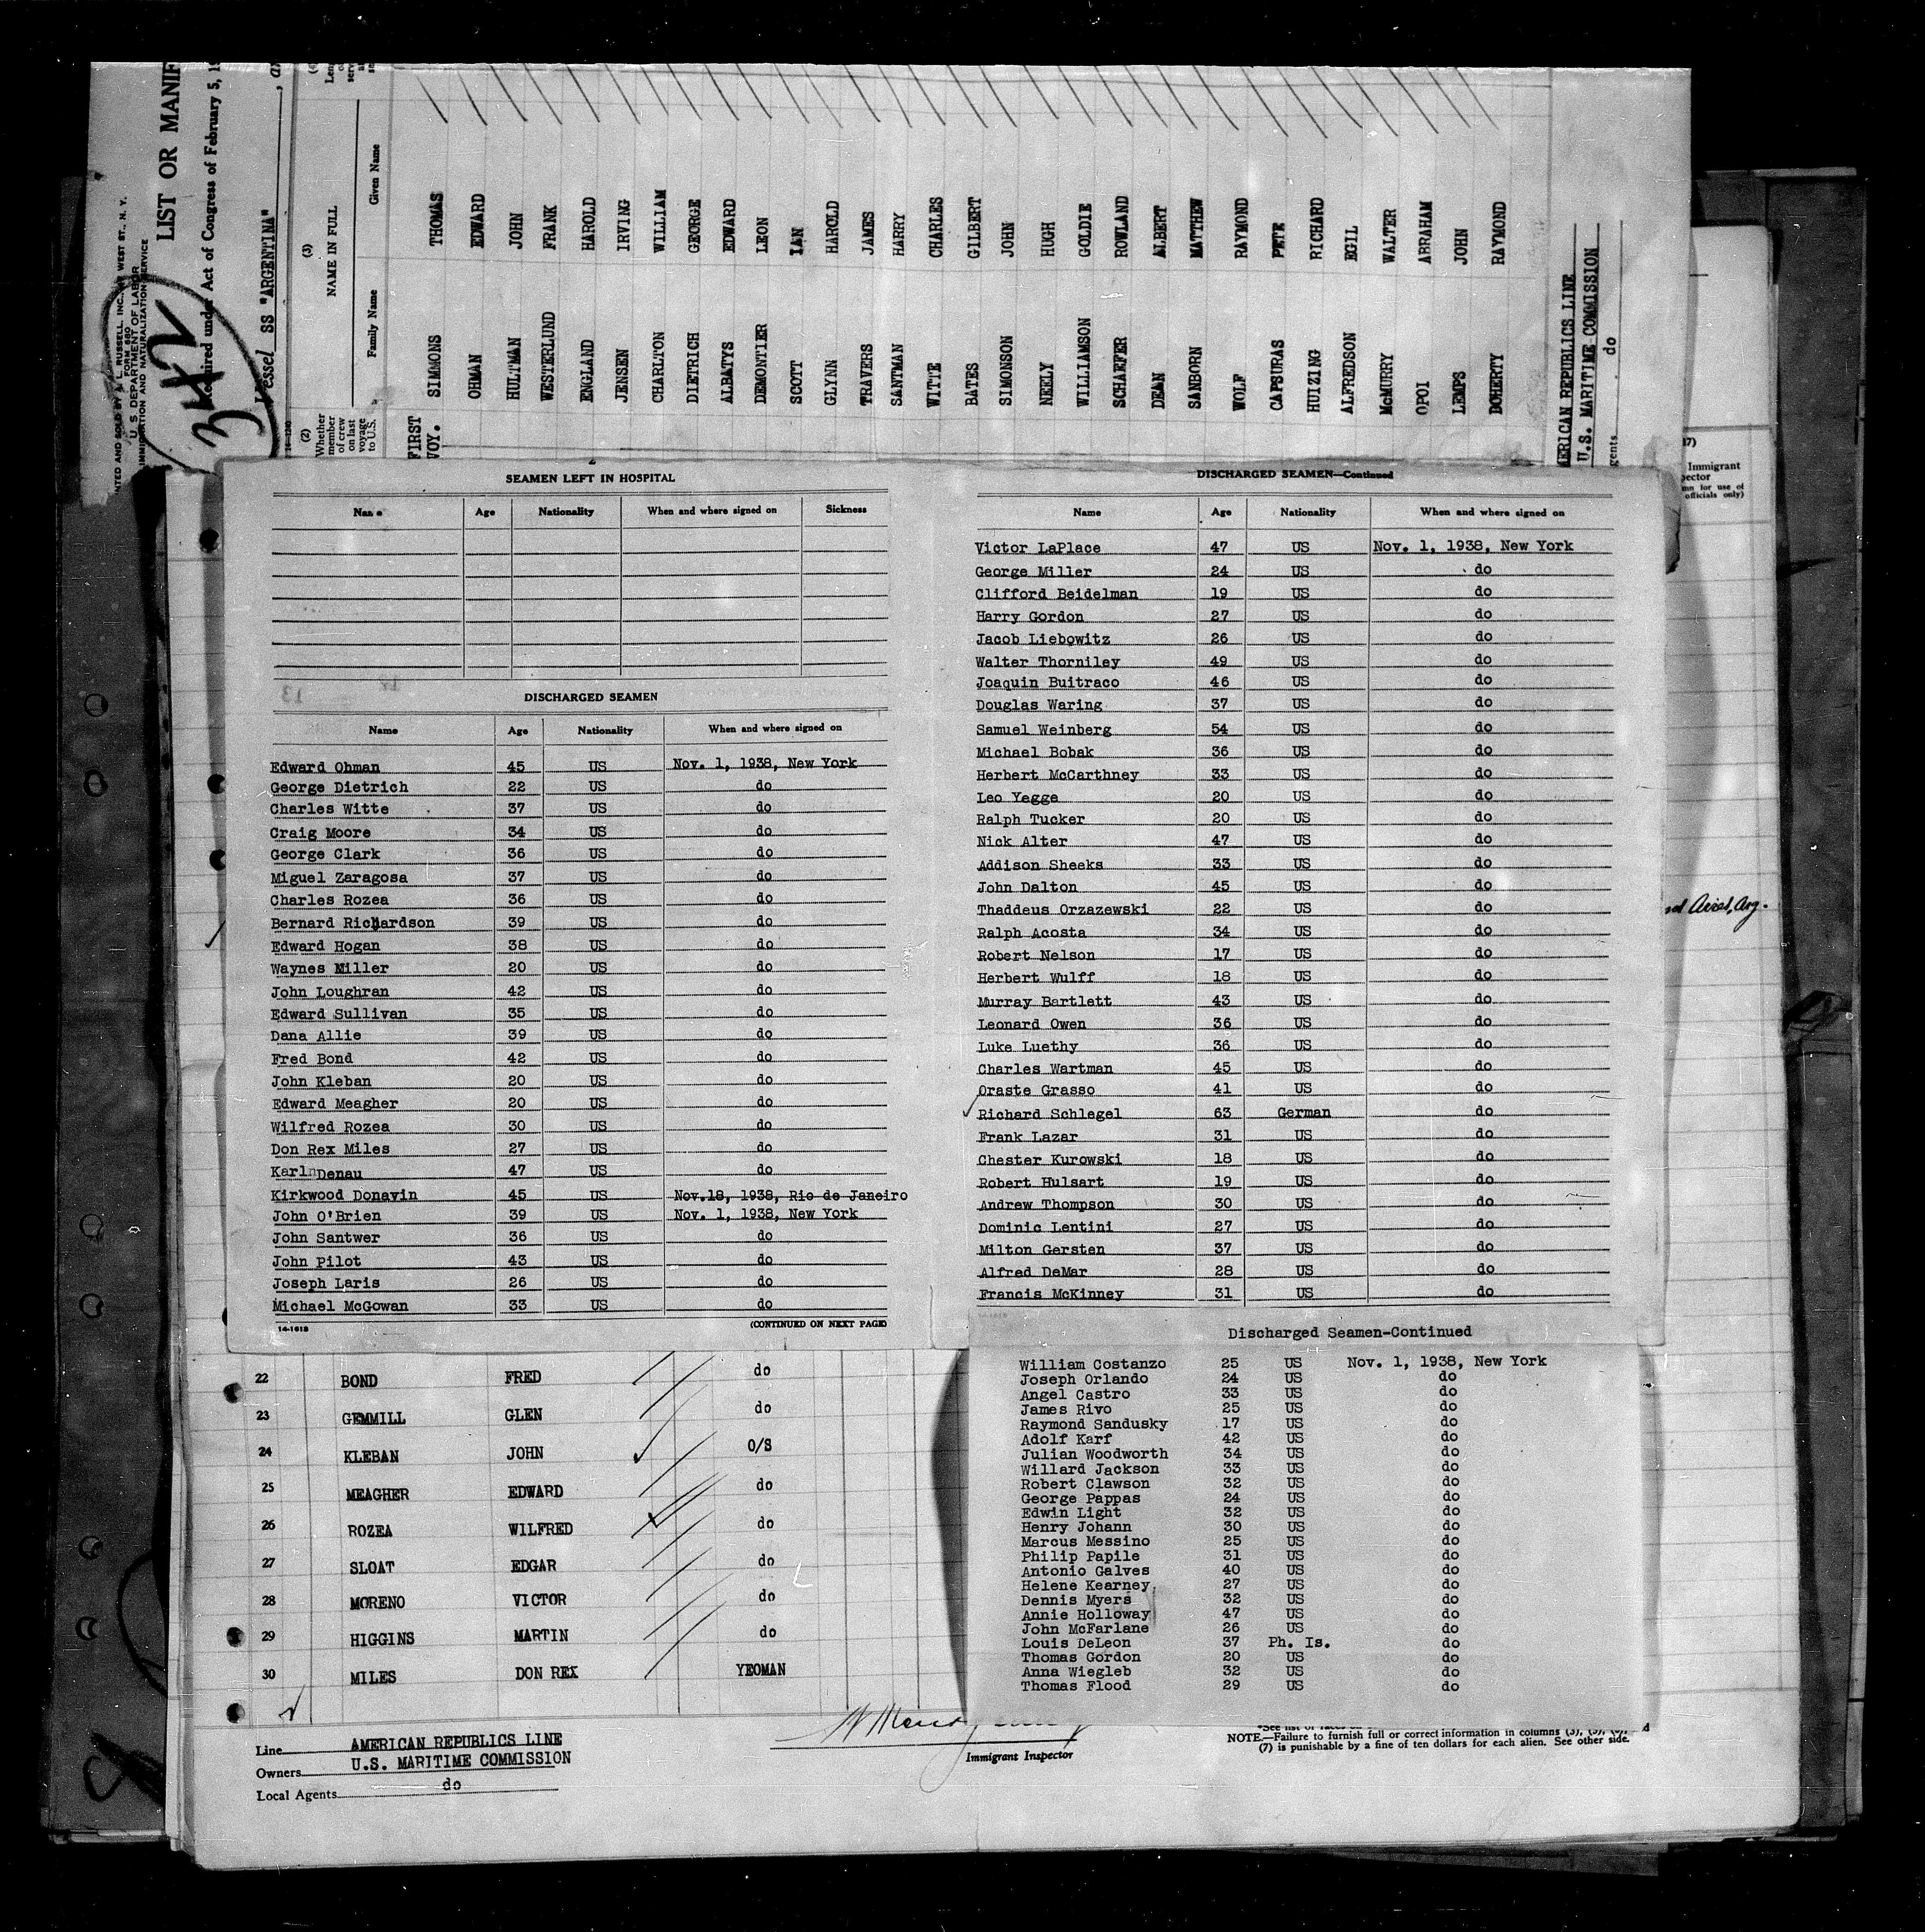 LIST OR MANIF
Required under Act of Congress of February 5, 19
Vessel SS "ARGENTINA", an
NTED AND SOLD BY L. RUSSELL, INC., WEST ST., N. Y.
FORM 680
U. S. DEPARTMENT OF LABOR
IMMIGRATION AND NATURALIZATION SERVICE
342
(2) Whether member of crew on last voyage to U.S.
(3) NAME IN FULL
Family Name Given Name
FIRST VOY.
SIMMONS THOMAS
OHMAN EDWARD
HULTMAN JOHN
WESTERLUND FRANK
ENGLAND HAROLD
JENSEN IRVING
CHARLTON WILLIAM
DIETRICH GEORGE
ALBATYS EDWARD
DEMONTIER LEON
SCOTT IAN
GLYNN HAROLD
TRAVERS JAMES
SANTMAN HARRY
WITTE CHARLES
BATES GILBERT
SIMONSON JOHN
NEELY HUGH
WILLIAMSON GOLDIE
SCHAEFER ROWLAND
DEAN ALBERT
SANBORN MATTHEW
WOLF RAYMOND
CAPSURAS PETE
HUIZING RICHARD
ALFREDSON EGIL
McMURRY WALTER
OPOI ABRAHAM
LEMPS JOHN
DOHERTY RAYMOND
MERICAN REPUBLICS LINE
U.S. MARITIME COMMISSION
gents do
SEAMEN LEFT IN HOSPITAL
Name Age Nationality When and where signed on Sickness
DISCHARGED SEAMEN
Name Age Nationality When and where signed on
Edward Ohman 45 US Nov. 1, 1938, New York
George Dietrich 22 US do
Charles Witte 37 US do
Craig Moore 34 US do
George Clark 36 US do
Miguel Zaragosa 37 US do
Charles Rozea 36 US do
Bernard Richardson 39 US do
Edward Hogan 38 US do
Waynes Miller 20 US do
John Loughran 42 US do
Edward Sullivan 35 US do
Dana Allie 39 US do
Fred Bond 42 US do
John Kleban 20 US do
Edward Meagher 20 US do
Wilfred Rozea 30 US do
Don Rex Miles 27 US do
Karl Denau 47 US do
Kirkwood Donavin 45 US Nov.18, 1938, Rio de Janeiro
John O'Brien 39 US Nov. 1, 1938, New York
John Santwer 36 US do
John Pilot 43 US do
Joseph Laris 26 US do
Michael McGowan 33 US do
14-1618 (CONTINUED ON NEXT PAGE)
DISCHARGED SEAMEN—Continued
Name Age Nationality When and where signed on
Victor LaPlace 47 US Nov. 1, 1938, New York
George Miller 24 US do
Clifford Beidelman 19 US do
Harry Gordon 27 US do
Jacob Liebowitz 26 US do
Walter Thorniley 49 US do
Joaquin Buitraco 46 US do
Douglas Waring 37 US do
Samuel Weinberg 54 US do
Michael Bobak 36 US do
Herbert McCarthney 33 US do
Leo Yegge 20 US do
Ralph Tucker 20 US do
Nick Alter 47 US do
Addison Sheeks 33 US do
John Dalton 45 US do
Thaddeus Orzazewski 22 US do
Ralph Acosta 34 US do
Robert Nelson 17 US do
Herbert Wulff 18 US do
Murray Bartlett 43 US do
Leonard Owen 36 US do
Luke Luethy 36 US do
Charles Wartman 45 US do
Oraste Grasso 41 US do
Richard Schlegel 63 German do
Frank Lazar 31 US do
Chester Kurowski 18 US do
Robert Hulsart 19 US do
Andrew Thompson 30 US do
Dominic Lentini 27 US do
Milton Gersten 37 US do
Alfred DeMar 28 US do
Francis McKinney 31 US do
Discharged Seamen-Continued
William Costanzo 25 US Nov. 1, 1938, New York
Joseph Orlando 24 US do
Angel Castro 33 US do
James Rivo 25 US do
Raymond Sandusky 17 US do
Adolf Karf 42 US do
Julian Woodworth 34 US do
Willard Jackson 33 US do
Robert Clawson 32 US do
George Pappas 24 US do
Edwin Light 32 US do
Henry Johann 30 US do
Marcus Messino 25 US do
Philip Papile 31 US do
Antonio Galves 40 US do
Helene Kearney 27 US do
Dennis Myers 32 US do
Annie Holloway 47 US do
John McFarlane 26 US do
Louis DeLeon 37 Ph. Is. do
Thomas Gordon 20 US do
Anna Wiegleb 32 US do
Thomas Flood 29 US do
17)
Immigrant
pector
mn for use of
officials only)
Aires, Arg.
22 BOND FRED do
23 GEMMILL GLEN do
24 KLEBAN JOHN O/S
25 MEAGHER EDWARD do
26 ROZEA WILFRED do
27 SLOAT EDGAR do
28 MORENO VICTOR do
29 HIGGINS MARTIN do
30 MILES DON REX YEOMAN
Line AMERICAN REPUBLICS LINE
Owners U.S. MARITIME COMMISSION
Local Agents do
Immigrant Inspector
NOTE.—Failure to furnish full or correct information in columns (3), (5), (6),
(7) is punishable by a fine of ten dollars for each alien. See other side.